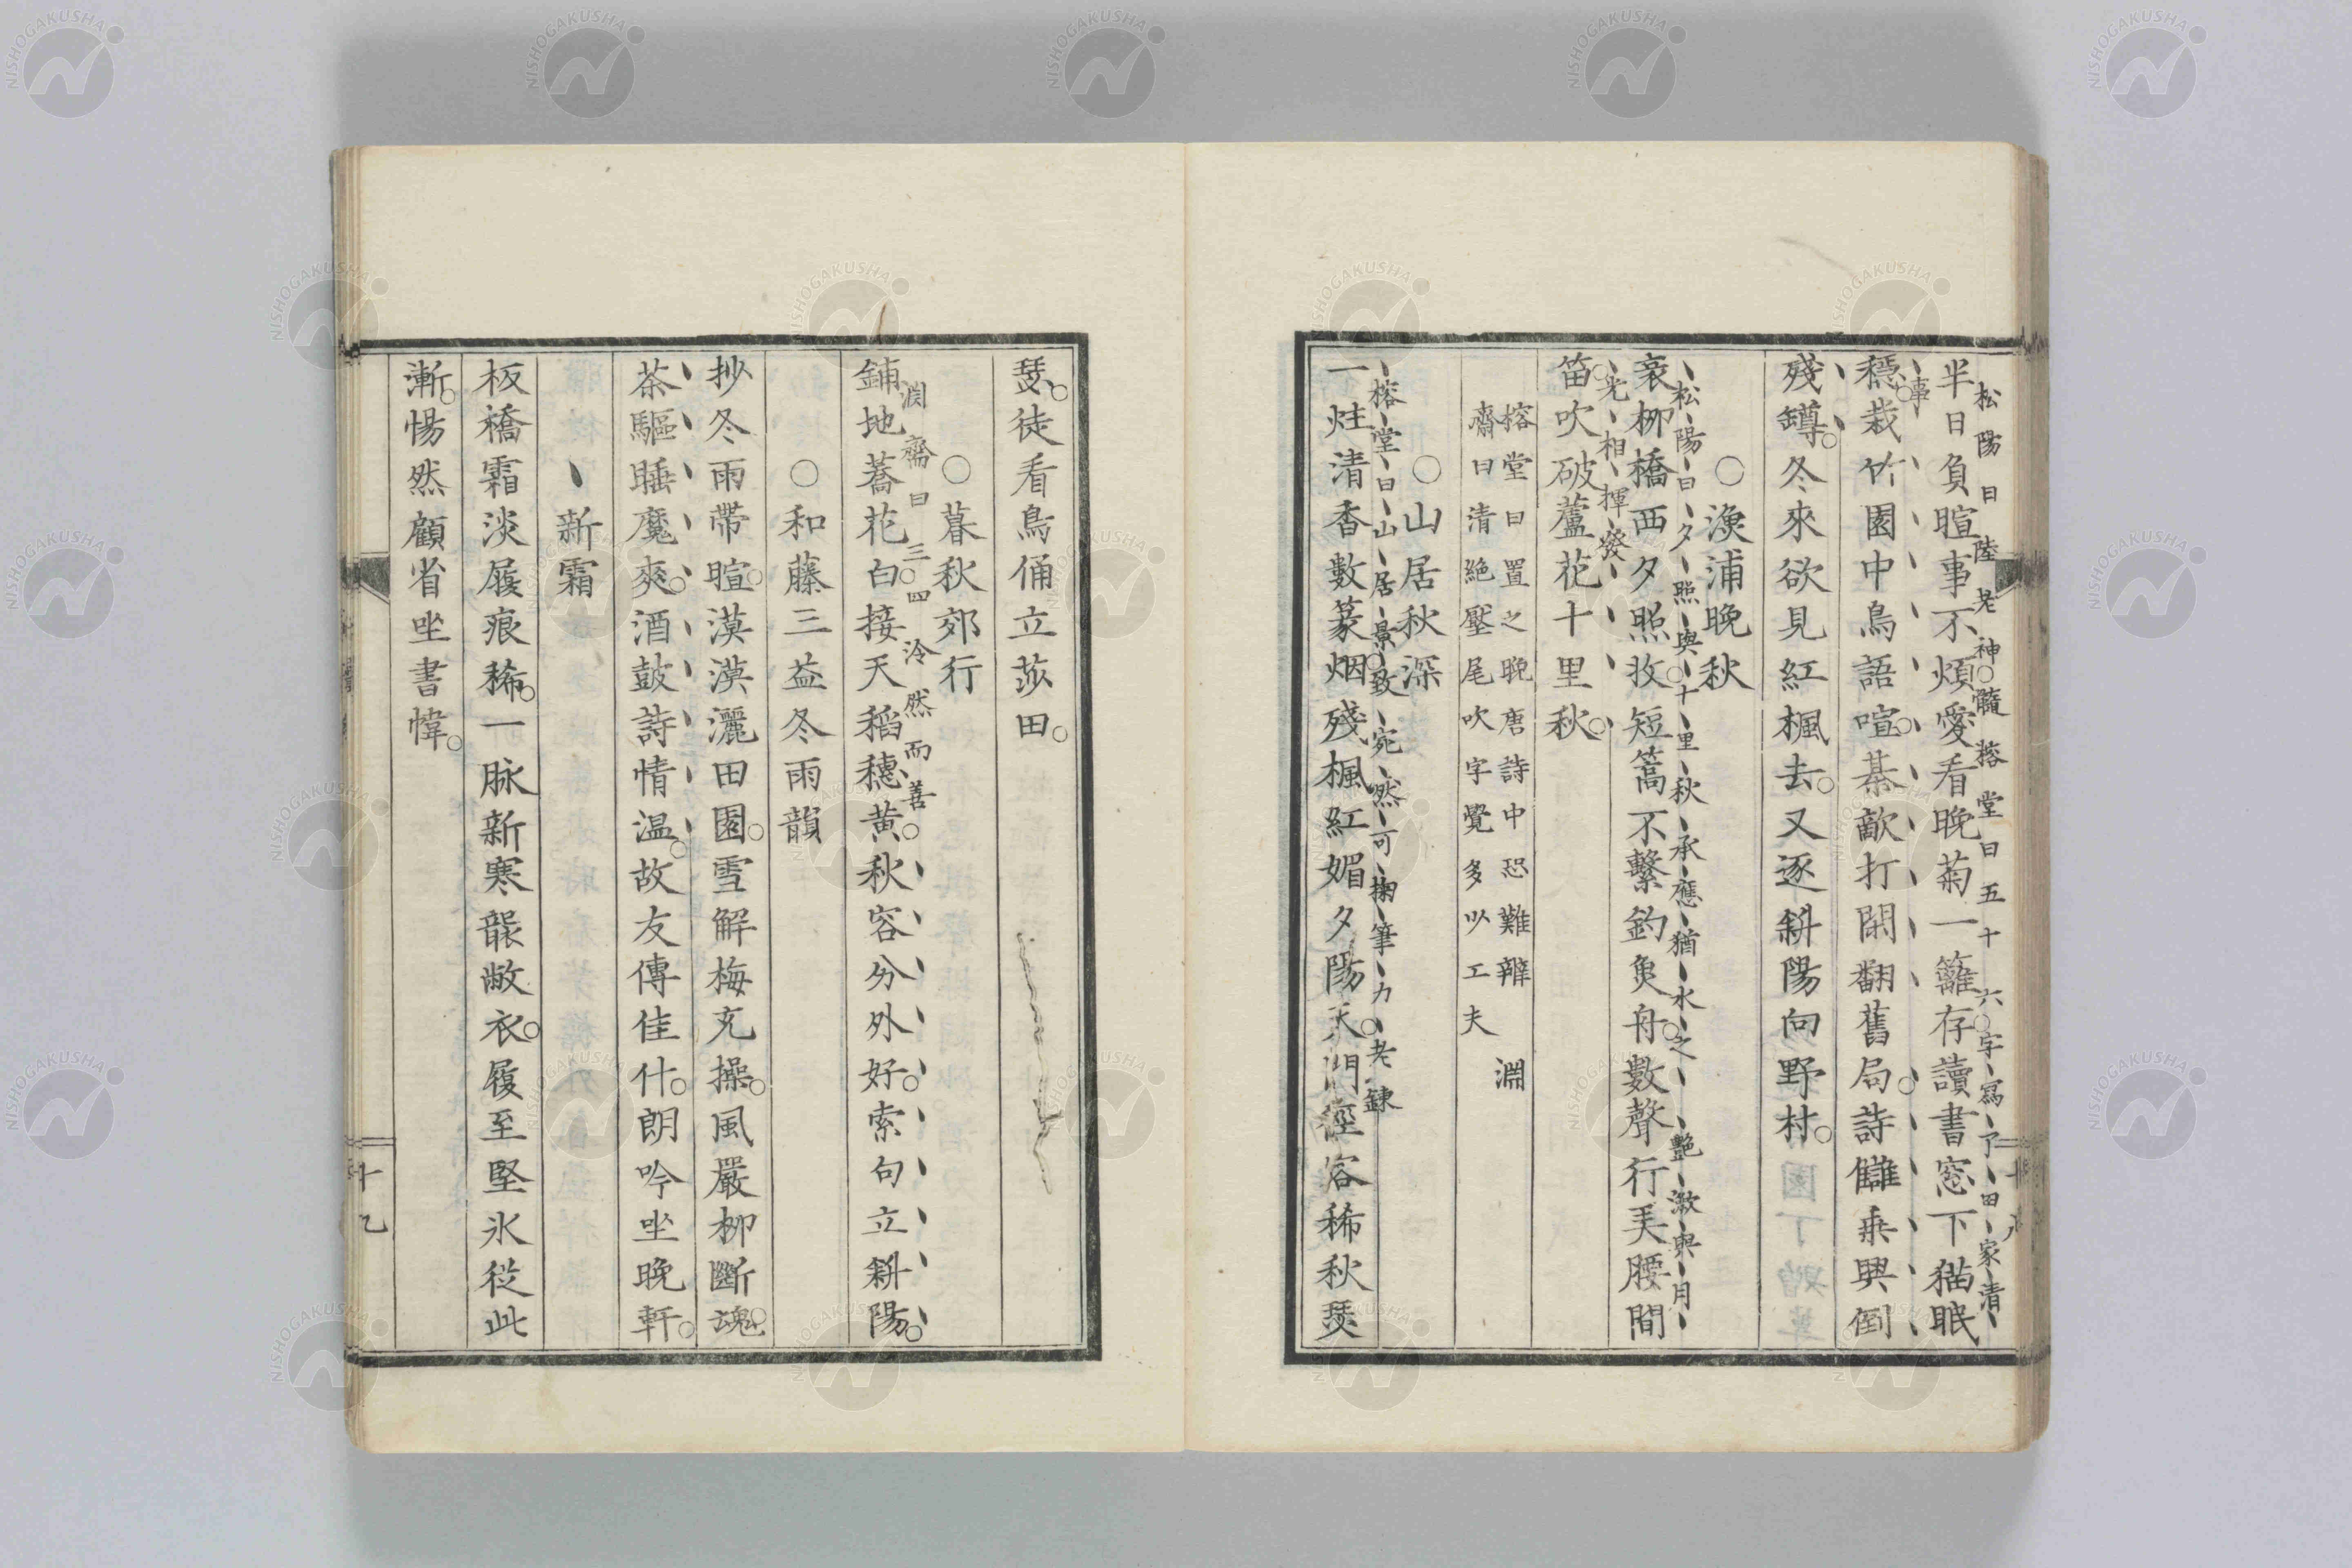 松陽曰陸老神髓榕堂曰五十六字寫了田家清
半日負暄事不煩愛看晚菊一籬存讀書窓下猫眠
事
穩栽竹園中鳥語喧棊敵打閑翻舊局詩讎乗興倒
殘罇冬來欲見紅楓去又逐斜陽向野村
○漁浦晩秋
松陽曰夕照與十里秋承應猶水之艶瀲與月
衰柳橋西夕照收短篙不繫釣魚舟數聲行美腰間
光相揮發
笛吹破蘆花十里秋
榕堂曰置之晩唐詩中恐難辨 淵
齋曰清絶壓尾吹字覺多少工夫
○山居秋深
榕堂曰山居景致宛然可掬筆力老錬
一炷清香數篆烟殘楓紅媚夕陽天門徑客稀秋瑟
瑟徒看鳥俑立莎田
○暮秋郊行
淵齋曰三四泠然而善
鋪地蕎花白接天稻穗黄秋容分外好索句立斜陽
○和藤三益冬雨韻
抄冬雨帶暄漠漠灑田園雪解梅充操風嚴柳斷魂
茶驅睡魔爽酒鼓詩情温故友傳佳什朗吟坐晩軒
新霜
板橋霜淡履痕稀一脉新寒襲敝衣履至堅氷從此
漸惕然顧省坐書幃
十九
NISHOGAKUSHA